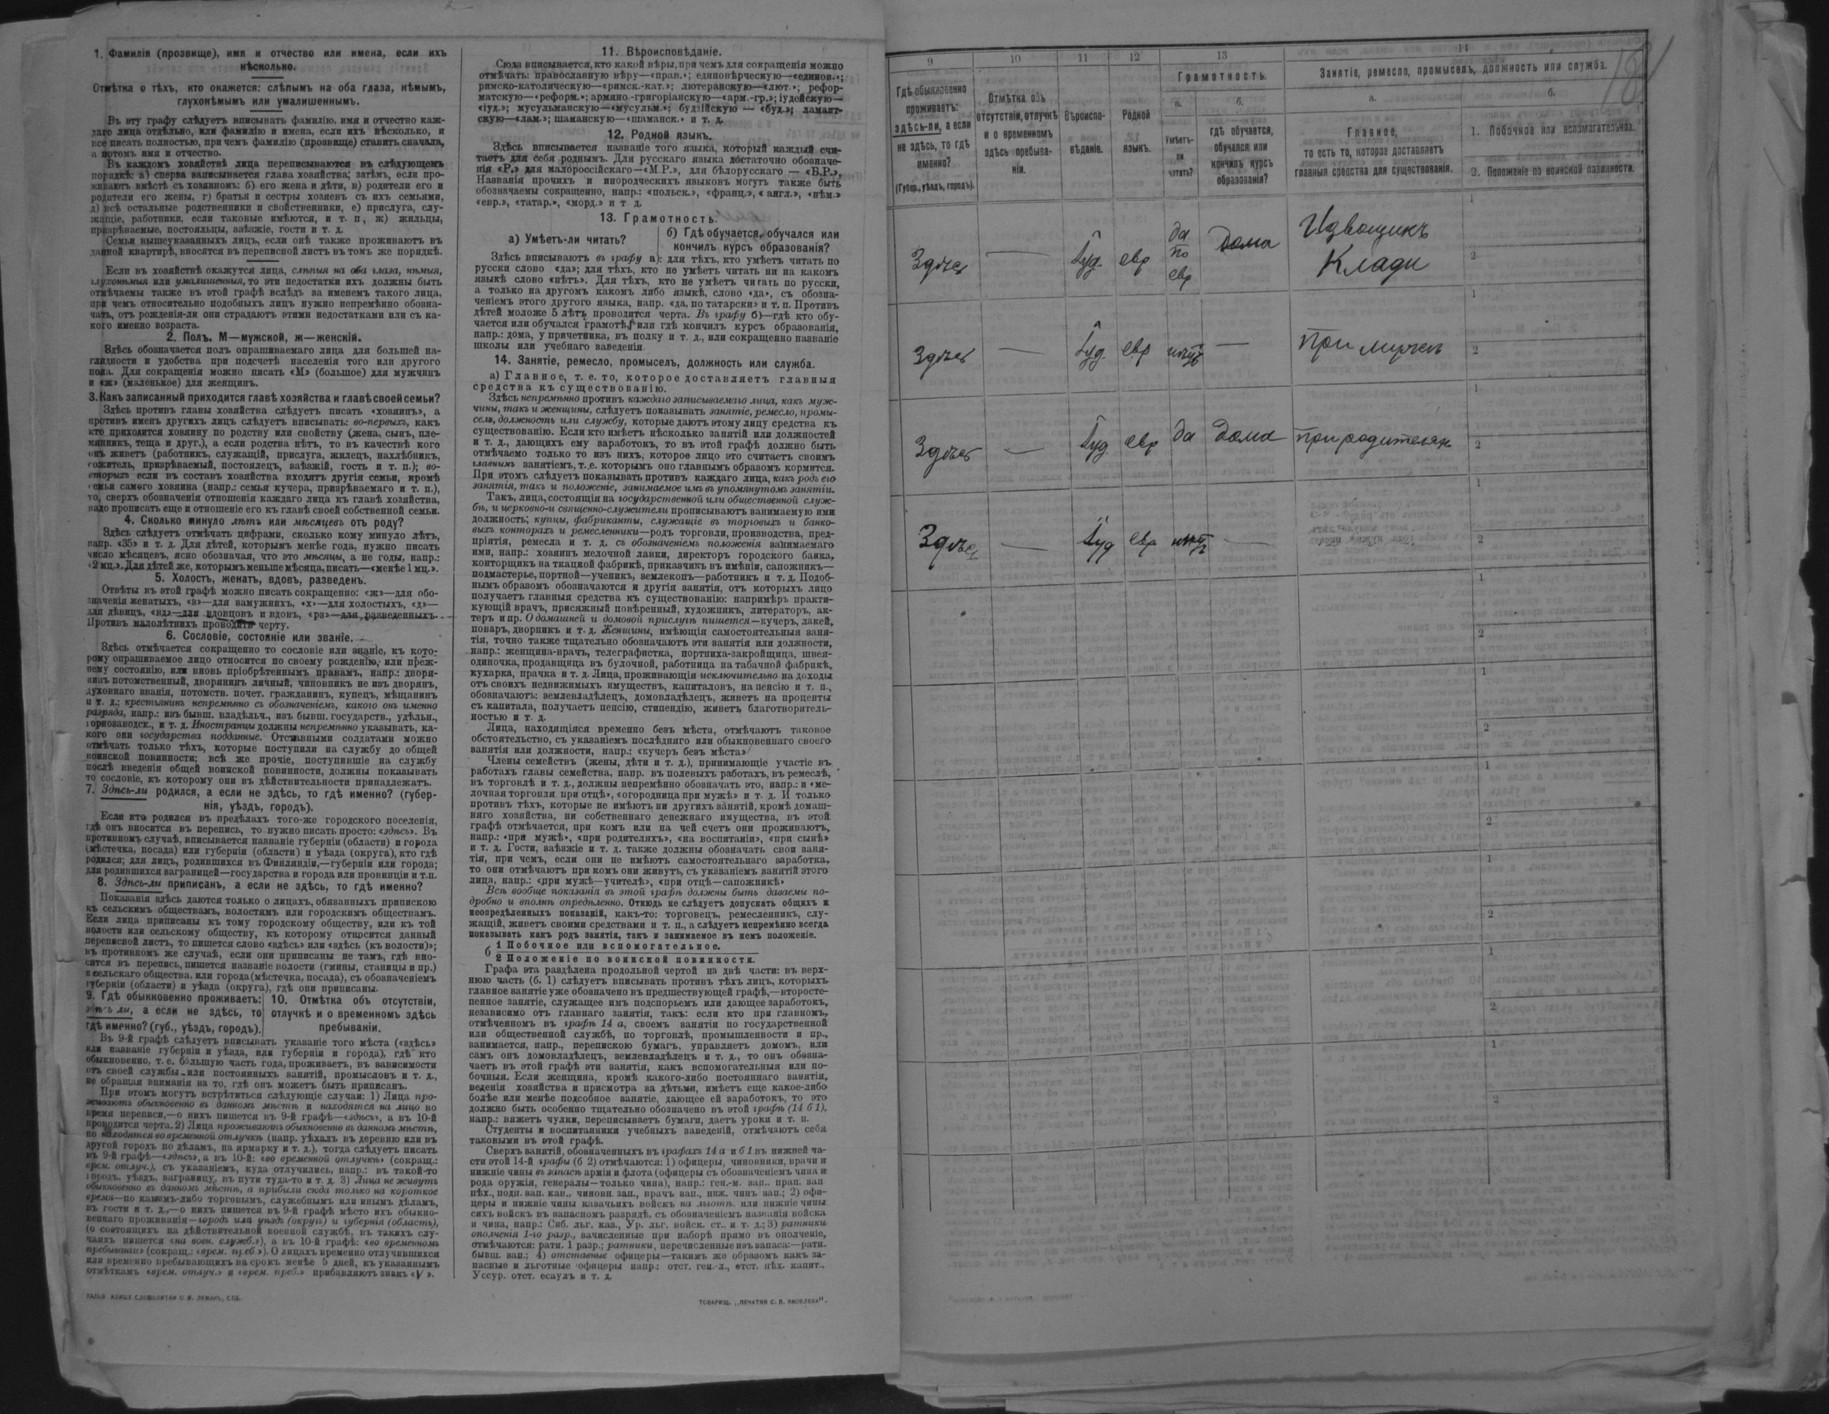 1. Фамилія (прозвище), имя и отчество или имена, если ихъ
нѣсколько.
Отмѣтка о тѣхъ, кто окажется: слѣпымъ на оба глаза, нѣмымъ,
глухонѣмымъ или умалишеннымъ.
Въ эту графу слѣдуетъ вписывать фамилію, имя и отчество каж-
даго лица отдѣльно, или фамилію и имена, если ихъ нѣсколько, и
все писать полностью, при чемъ фамилію (прозвище) ставить сначала,
а потомъ имя и отчество.
Въ каждомъ хозяйствѣ лица переписываются въ слѣдующемъ
порядкѣ: а) сперва записывается глава хозяйства; затѣмъ, если про-
живаютъ вмѣстѣ съ хозяиномъ: б) его жена и дѣти, в) родители его и
родители его жены, г) братья и сестры хозяевъ съ ихъ семьями,
д) всѣ остальные родственники и свойственники, е) прислуга, слу-
жащіе, работники, если таковые имѣются, и т. п., ж) жильцы,
призрѣваемые, постояльцы, заѣзжіе, гости и т. д.
Семьи вышеуказанныхъ лицъ, если онѣ также проживаютъ въ
данной квартирѣ, вносятся въ переписной листъ въ томъ же порядкѣ.
Если въ хозяйствѣ окажутся лица, слѣпыя на оба глаза, нѣмыя,
глухонѣмыя или умалишенныя, то эти недостатки ихъ должны быть
отмѣчаемы также въ этой графѣ вслѣдъ за именемъ такого лица,
при чемъ относительно подобныхъ лицъ нужно непремѣнно обозна-
чать, отъ рожденія-ли они страдаютъ этими недостатками или съ ка-
кого именно возраста.
2. Полъ. М—мужской, ж—женскій.
Здѣсь обозначается полъ опрашиваемаго лица для большей на-
глядности и удобства при подсчетѣ населенія того или другого
пола. Для сокращенія можно писать «М» (большое) для мужчинъ
и «ж» (маленькое) для женщинъ.
3. Какъ записанный приходится главѣ хозяйства и главѣ своей семьи?
Здѣсь противъ главы хозяйства слѣдуетъ писать «хозяинъ», а
противъ именъ другихъ лицъ слѣдуетъ вписывать: во-первыхъ, какъ
кто приходится хозяину по родству или свойству (жена, сынъ, пле-
мянникъ, теща и друг.), а если родства нѣтъ, то въ качествѣ кого
онъ живетъ (работникъ, служащій, прислуга, жилецъ, нахлѣбникъ,
сожитель, призрѣваемый, постоялецъ, заѣзжій, гость и т. п.); во-
вторыхъ если въ составъ хозяйства входятъ другія семьи, кромѣ
семьи самого хозяина (напр.: семья кучера, призрѣваемаго и т. п.),
то, сверхъ обозначенія отношенія каждаго лица къ главѣ хозяйства,
надо прописать еще и отношеніе его къ главѣ своей собственной семьи.
4. Сколько минуло лѣтъ или мѣсяцевъ отъ роду?
Здѣсь слѣдуетъ отмѣчать цифрами, сколько кому минуло лѣтъ,
напр. «35» и т. д. Для дѣтей, которымъ менѣе года, нужно писать
число мѣсяцевъ, ясно обозначая, что это мѣсяцы, а не годы, напр.:
«2 мц.». Для дѣтей же, которымъ меньше мѣсяца, писать—«менѣе 1 мц.».
5. Холостъ, женатъ, вдовъ, разведенъ.
Отвѣты въ этой графѣ можно писать сокращенно: «ж»—для обо-
значенія женатыхъ, «з»—для замужнихъ, «х»—для холостыхъ, «д»—
для дѣвицъ, «вд»—для вдовцовъ и вдовъ, «рз»—для разведенныхъ.
Противъ малолѣтнихъ проводить черту.
6. Сословіе, состояніе или званіе.
Здѣсь отмѣчается сокращенно то сословіе или званіе, къ кото-
рому опрашиваемое лицо относится по своему рожденію, или преж-
нему состоянію, или вновь пріобрѣтеннымъ правамъ, напр.: дворя-
нинъ потомственный, дворянинъ личный, чиновникъ не изъ дворянъ,
духовнаго званія, потомств. почет. гражданинъ, купецъ, мѣщанинъ
и т. д.; крестьянинъ непремѣнно съ обозначеніемъ, какого онъ именно
разряда, напр.: изъ бывш. владѣльч., изъ бывш. государств., удѣльн.,
горнозаводск., и т. д. Иностранцы должны непремѣнно указывать, ка-
кого они государства подданные. Отставными солдатами можно
отмѣчать только тѣхъ, которые поступили на службу до общей
воинской повинности; всѣ же прочіе, поступившіе на службу
послѣ введенія общей воинской повинности, должны показывать
то сословіе, къ которому они въ дѣйствительности принадлежатъ.
7. Здѣсь-ли родился, а если не здѣсь, то гдѣ именно? (губер-
нія, уѣздъ, городъ).
Если кто родился въ предѣлахъ того-же городского поселенія,
гдѣ онъ вносится въ перепись, то нужно писать просто: «здѣсь». Въ
противномъ случаѣ, вписывается названіе губерніи (области) и города
(мѣстечка, посада) или губерніи (области) и уѣзда (округа), кто гдѣ
родился; для лицъ, родившихся въ Финляндіи,—губерніи или города;
для родившихся заграницей—государства и города или провинціи и т.п.
8. Здѣсь-ли приписанъ, а если не здѣсь, то гдѣ именно?
Показанія здѣсь даются только о лицахъ, обязанныхъ припискою
къ сельскимъ обществамъ, волостямъ или городскимъ обществамъ.
Если лица приписаны къ тому городскому обществу, или къ той
волости или сельскому обществу, къ которому относится данный
переписной листъ, то пишется слово «здѣсь» или «здѣсь (къ волости)»;
въ противномъ же случаѣ, если они приписаны не тамъ, гдѣ вно-
сятся въ перепись, пишется названіе волости (гмины, станицы и пр.)
и сельскаго общества, или города (мѣстечка, посада), съ обозначеніемъ
губерніи (области) и уѣзда (округа), гдѣ они приписаны.
9. Гдѣ обыкновенно проживаетъ:
здѣсь ли, а если не здѣсь, то
гдѣ именно? (губ., уѣздъ, городъ).
10. Отмѣтка объ отсутствіи,
отлучкѣ и о временномъ здѣсь
пребываніи.
Въ 9-й графѣ слѣдуетъ вписывать указаніе того мѣста («здѣсь»
или названіе губерніи и уѣзда, или губерніи и города), гдѣ кто
обыкновенно, т. е. бо́льшую часть года, проживаетъ, въ зависимости
отъ своей службы или постоянныхъ занятій, промысловъ и т. д.,
не обращая вниманія на то, гдѣ онъ можетъ быть приписанъ.
При этомъ могутъ встрѣтиться слѣдующіе случаи: 1) Лица про-
живаютъ обыкновенно въ данномъ мѣстѣ и находятся на лицо во
время переписи,—о нихъ пишется въ 9-й графѣ—«здѣсь», а въ 10-й
проводится черта. 2) Лица проживаютъ обыкновенно въ данномъ мѣстѣ,
но находятся во временной отлучкѣ (напр. уѣхалъ въ деревню или въ
другой городъ по дѣламъ, на ярмарку и т. д.), тогда слѣдуетъ писать
въ 9-й графѣ—«здѣсь», а въ 10-й: «во временной отлучкѣ» (сокращ.:
«врем. отлуч.»), съ указаніемъ, куда отлучились, напр.: въ такой-то
городъ, уѣздъ, заграницу, въ пути туда-то и т. д. 3) Лица не живутъ
обыкновенно въ данномъ мѣстѣ, а прибыли сюда только на короткое
время—по какимъ-либо торговымъ, служебнымъ или инымъ дѣламъ,
въ гости и т. д.,—о нихъ пишется въ 9-й графѣ мѣсто ихъ обыкно-
веннаго проживанія—городъ или уѣздъ (округъ) и губернія (область),
(о состоящихъ на дѣйствительной военной службѣ, въ такихъ слу-
чаяхъ пишется «на воен. служб.»), а въ 10-й графѣ: «во временномъ
пребываніи» (сокращ.: «врем. преб.»). О лицахъ временно отлучившихся
или временно пребывающихъ на срокъ менѣе 5 дней, къ указаннымъ
отмѣткамъ «врем. отлуч.» и «врем. преб.» прибавляютъ знакъ «V».
11. Вѣроисповѣданіе.
Сюда вписывается, кто какой вѣры, при чемъ для сокращенія можно
отмѣчать: православную вѣру—«прав.»; единовѣрческую—«единов.»;
римско-католическую—«римск.-кат.»; лютеранскую—«лют.»; рефор-
матскую—«реформ.»; армяно-григоріанскую—«арм.-гр.»; іудейскую—
«іуд.»; мусульманскую—«мусульм.»; буддійскую — «буд.»; ламаит-
скую—«лам.»; шаманскую—«шаманск.» и т. д.
12. Родной языкъ.
Здѣсь вписывается названіе того языка, который каждый счи-
таетъ для себя роднымъ. Для русскаго языка достаточно обозначе-
нія «Р.» для малороссійскаго—«М.Р.», для бѣлорусскаго — «Б.Р.».
Названія прочихъ и инородческихъ языковъ могутъ также быть
обозначаемы сокращенно, напр.: «польск.», «франц.», «англ.», «нѣм.»
«евр.», «татар.», «морд.» и т. д.
13. Грамотность.
а) Умѣетъ-ли читать?
б) Гдѣ обучается, обучался или
кончилъ курсъ образованія?
Здѣсь вписываютъ въ графу а): для тѣхъ, кто умѣетъ читать по
русски слово «да»; для тѣхъ, кто не умѣетъ читать ни на какомъ
языкѣ слово «нѣтъ». Для тѣхъ, кто не умѣетъ читать по русски,
а только на другомъ какомъ либо языкѣ, слово «да», съ обозна-
ченіемъ этого другого языка, напр. «да, по татарски» и т. п. Противъ
дѣтей моложе 5 лѣтъ проводится черта. Въ графу б)—гдѣ кто обу-
чается или обучался грамотѣ, или гдѣ кончилъ курсъ образованія,
напр.: дома, у причетника, въ полку и т. д., или сокращенно названіе
школы или учебнаго заведенія.
14. Занятіе, ремесло, промыселъ, должность или служба.
а) Главное, т. е. то, которое доставляетъ главныя
средства къ существованію.
Здѣсь непремѣнно противъ каждаго записываемаго лица, какъ муж-
чины, такъ и женщины, слѣдуетъ показывать занятіе, ремесло, промы-
селъ, должность или службу, которые даютъ этому лицу средства къ
существованію. Если кто имѣетъ нѣсколько занятій или должностей
и т. д., дающихъ ему заработокъ, то въ этой графѣ должно быть
отмѣчаемо только то изъ нихъ, которое лицо это считаетъ своимъ
главнымъ занятіемъ, т.е. которымъ оно главнымъ образомъ кормится.
При этомъ слѣдуетъ показывать противъ каждаго лица, какъ родъ его
занятія, такъ и положеніе, занимаемое имъ въ упомянутомъ занятіи.
Такъ, лица, состоящія на государственной или общественной служ-
бѣ, и церковно-и священно-служители прописываютъ занимаемую ими
должность; купцы, фабриканты, служащіе въ торговыхъ и банко-
выхъ конторахъ и ремесленники—родъ торговли, производства, пред-
пріятія, ремесла и т. д. съ обозначеніемъ положенія занимаемаго
ими, напр.: хозяинъ мелочной лавки, директоръ городского банка,
конторщикъ на ткацкой фабрикѣ, приказчикъ въ имѣніи, сапожникъ—
подмастерье, портной—ученикъ, землекопъ—работникъ и т. д. Подоб-
нымъ образомъ обозначаются и другія занятія, отъ которыхъ лицо
получаетъ главныя средства къ существованію: напримѣръ практи-
кующій врачъ, присяжный повѣренный, художникъ, литераторъ, ак-
теръ и пр. О домашней и домовой прислугѣ пишется—кучеръ, лакей,
поваръ, дворникъ и т. д. Женщины, имѣющія самостоятельныя заня-
тія, точно также тщательно обозначаютъ эти занятія или должности,
напр.: женщина-врачъ, телеграфистка, портниха-закройщица, швея-
одиночка, продавщица въ булочной, работница на табачной фабрикѣ,
кухарка, прачка и т. д. Лица, проживающія исключительно на доходы
отъ своихъ недвижимыхъ имуществъ, капиталовъ, на пенсію и т. п.,
обозначаютъ: землевладѣлецъ, домовладѣлецъ, живетъ на проценты
съ капитала, получаетъ пенсію, стипендію, живетъ благотворитель-
ностью и т. д.
Лица, находящіяся временно безъ мѣста, отмѣчаютъ таковое
обстоятельство, съ указаніемъ послѣдняго или обыкновеннаго своего
занятія или должности, напр.: «кучеръ безъ мѣста»
Члены семействъ (жены, дѣти и т. д.), принимающіе участіе въ
работахъ главы семейства, напр. въ полевыхъ работахъ, въ ремеслѣ,
въ торговлѣ и т. д., должны непремѣнно обозначать это, напр.: и «ме-
лочная торговля при отцѣ», «огородница при мужѣ» и т. д. И только
противъ тѣхъ, которые не имѣютъ ни другихъ занятій, кромѣ домаш-
няго хозяйства, ни собственнаго денежнаго имущества, въ этой
графѣ отмѣчается, при комъ или на чей счетъ они проживаютъ,
напр.: «при мужѣ», «при родителяхъ», «на воспитаніи», «при сынѣ»
и т. д. Гости, заѣзжіе и т. д. также должны обозначать свои заня-
тія, при чемъ, если они не имѣютъ самостоятельнаго заработка,
то они отмѣчаютъ при комъ они живутъ, съ указаніемъ занятій этого
лица, напр.: «при мужѣ—учителѣ», «при отцѣ—сапожникѣ»
Всѣ вообще показанія въ этой графѣ должны быть даваемы по-
дробно и вполнѣ опредѣленно. Отнюдь не слѣдуетъ допускать общихъ и
неопредѣленныхъ показаній, какъ-то: торговецъ, ремесленникъ, слу-
жащій, живетъ своими средствами и т. п., а слѣдуетъ непремѣнно всегда
показывать какъ родъ занятія, такъ и занимаемое въ немъ положеніе.
1 Побочное или вспомогательное.
б
2 Положеніе по воинской повинности.
Графа эта раздѣлена продольной чертой на двѣ части: въ верх-
нюю часть (б. 1) слѣдуетъ вписывать противъ тѣхъ лицъ, которыхъ
главное занятіе уже обозначено въ предшествующей графѣ,—второсте-
пенное занятіе, служащее имъ подспорьемъ или дающее заработокъ,
независимо отъ главнаго занятія, такъ: если кто при главномъ,
отмѣченномъ въ графѣ 14 а, своемъ занятіи по государственной
или общественной службѣ, по торговлѣ, промышленности и пр.,
занимается, напр., перепискою бумагъ, управляетъ домомъ, или
самъ онъ домовладѣлецъ, землевладѣлецъ и т. д., то онъ обозна-
чаетъ въ этой графѣ эти занятія, какъ вспомогательныя или по-
бочныя. Если женщина, кромѣ какого-либо постояннаго занятія,
веденія хозяйства и присмотра за дѣтьми, имѣетъ еще какое-либо
болѣе или менѣе подсобное занятіе, дающее ей заработокъ, то это
должно быть особенно тщательно обозначено въ этой графѣ (14 б 1),
напр.: вяжетъ чулки, переписываетъ бумаги, даетъ уроки и т. п.
Студенты и воспитанники учебныхъ заведеній, отмѣчаютъ себя
таковыми въ этой графѣ.
Сверхъ занятій, обозначенныхъ въ графахъ 14 а и б 1 въ нижней ча-
сти этой 14-й графы (б 2) отмѣчаются: 1) офицеры, чиновники, врачи и
нижніе чины въ запасѣ арміи и флота (офицеры съ обозначеніемъ чина и
рода оружія, генералы—только чина), напр.: ген.-м. зап., прап. зап
пѣх., подп. зап. кав., чиновн. зап., врачъ зап., ниж. чинъ зап.; 2) офи-
церы и нижніе чины казачьихъ войскъ на льготѣ, или нижніе чины
сихъ войскъ въ запасномъ разрядѣ, съ обозначеніемъ названія войска
и чина, напр.: Сиб. льг. каз., Ур. льг. войск. ст.. и т. д.; 3) ратники
ополченія 1-го разр., зачисленные при наборѣ прямо въ ополченіе,
отмѣчаются: ратн. 1 разр.; ратники, перечисленные изъ запаса:—ратн.
бывш. зап.; 4) отставные офицеры—такимъ же образомъ какъ за-
пасные и льготные офицеры напр: отст. ген.-л., отст. пѣх. капит.,
Уссур. отст. есаулъ и т. д.
ТОВАРИЩ. „ПЕЧАТНЯ С. П. ЯКОВЛЕВА“.
9 10 11 12 13 14
Гдѣ обыкновенно
проживаетъ:
здѣсь-ли, а если
не здѣсь, то гдѣ
именно?
(Губер., уѣздъ, городъ).
Отмѣтка объ
отсутствіи, отлучкѣ
и о временномъ
здѣсь пребыва-
ніи.
Вѣроиспо-
вѣданіе.
Родной
языкъ.
Грамотность.
а.
Умѣетъ-
ли
читать?
б.
гдѣ обучается,
обучался или
кончилъ курсъ
образованія?
Занятіе, ремесло, промыселъ, должность или служба.
а.
Главное,
то есть то, которое доставляетъ
главныя средства для существованія.
б.
1. Побочное или вспомогательное.
2. Положеніе по воинской повинности.
Здѣсь — Іуд. евр да по евр Дома Извощикъ Клади
1
2
Здѣсь — Іуд. евр нѣтъ — при мужѣ
1
2
Здѣсь — Іуд евр да Дома при родителяхъ
1
2
Здѣсь — Іуд евр нѣтъ —
1
2
1
2
1
2
1
2
1
2
1
2
1
2